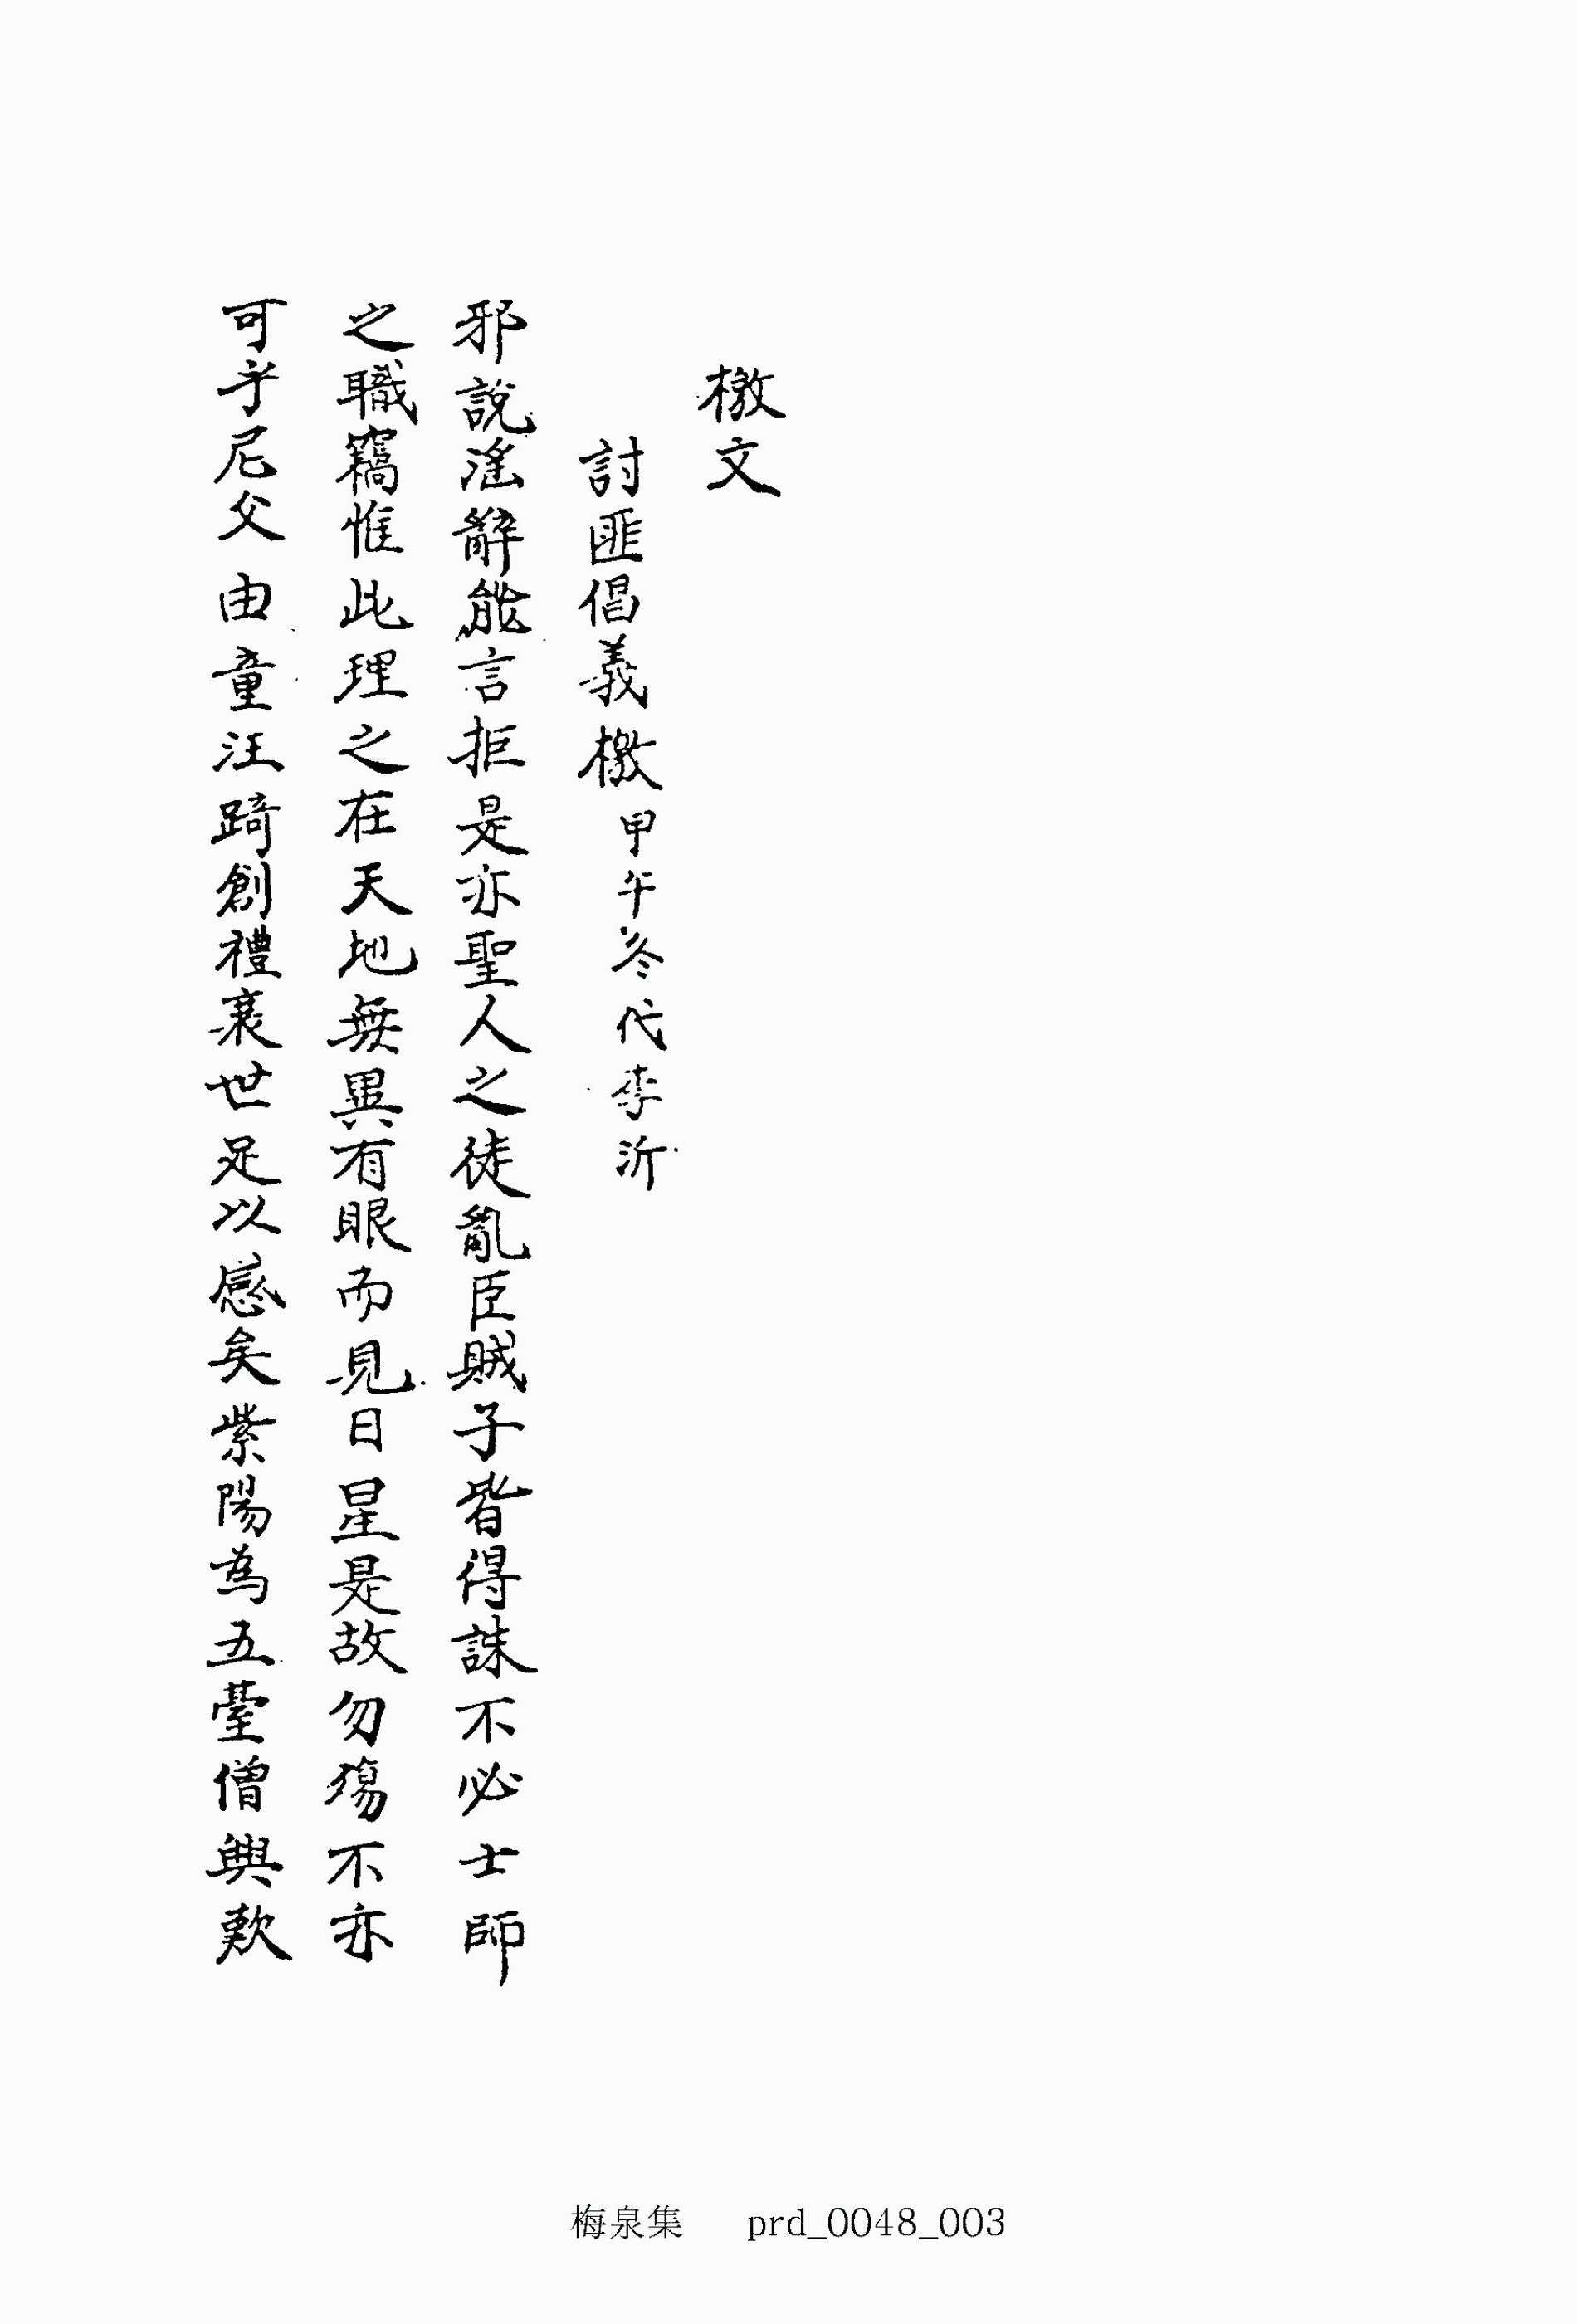 檄文
討匪倡義檄 甲午冬代李沂
邪說淫辭能言拒是亦聖人之徒亂臣賊子皆得誅不必士師
之職竊惟此理之在天地無異有眼而見日星是故勿殤不亦
可乎尼父由童汪踦創禮衰世足以感矣紫陽為五臺僧興歎
梅泉集 prd_0048_003